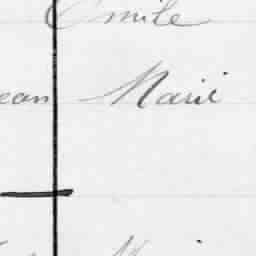 Emile
ean Marie